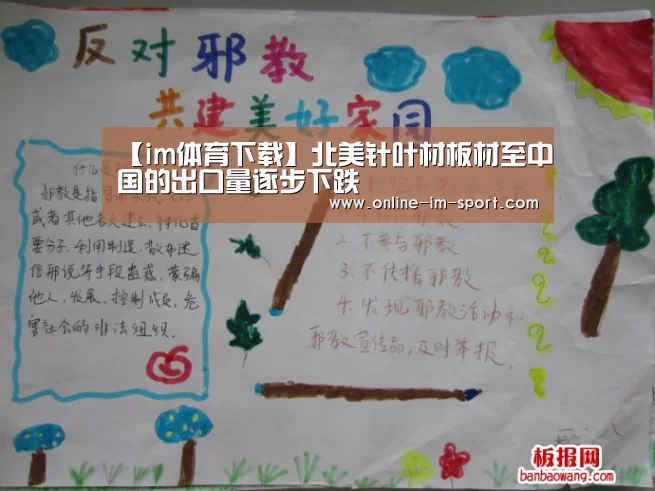 反对邪教
共建美好家园
【im体育下载】北美针叶材板材至中
国的出口量逐步下跌
www.online-im-sport.com
什么是
邪教是指
或者其他名义建立,神化首
要分子,利用制造、散布迷
信邪说等手段蛊惑、蒙骗
他人,发展、控制成员,危
害社会的非法组织.
2.不参与邪教
3.不传播邪教
4.发现邪教活动和
邪教宣传品,及时举报.
板报网
banbaowang.com